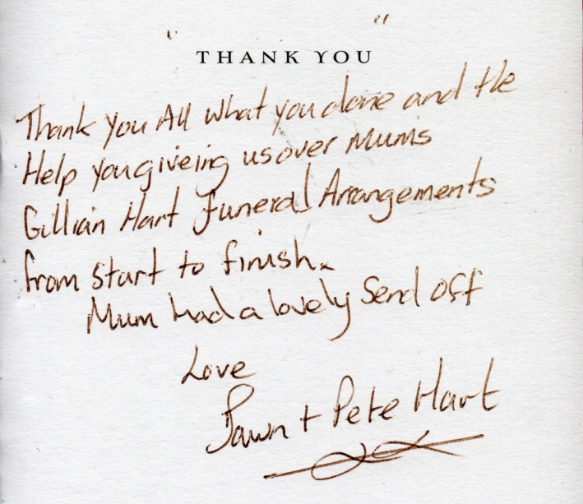 " "
THANK YOU
Thank you All what you done and the
Help you giveing us over Mums
Gillian Hart Funeral Arrangements
from start to finish.
Mum had a lovely Send off
Love
Dawn + Pete Hart